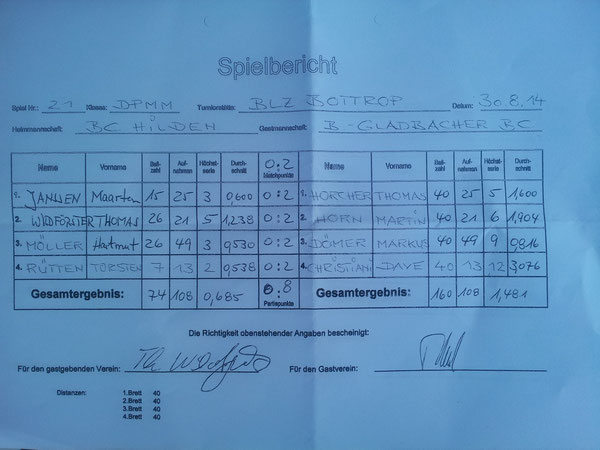 Spielbericht
Spiel Nr.: 21 Klasse: DPMM Turnierstätte: BLZ BOTTROP Datum: 30.8.14
Heimmannschaft: BC HILDEN Gastmannschaft: B-GLADBACHER BC
Name Vorname Ball-zahl Auf-nahmen Höchst-serie Durch-schnitt 0:2 Matchpunkte Name Vorname Ball-zahl Auf-nahmen Höchst-serie Durch-schnitt
1. JANSSEN Maarten 15 25 3 0,600 0:2 1. HORCHER THOMAS 40 25 5 1,600
2. WILDFÖRSTER THOMAS 26 21 5 1,238 0:2 2. HORN MARTIN 40 21 6 1,904
3. MÖLLER Hartmut 26 49 3 0,530 0:2 3. DÖMER MARKUS 40 49 9 0,816
4. RÜTTEN TORSTEN 7 13 2 0,538 0:2 4. CHRISTIANI DAVE 40 13 12 3,076
Gesamtergebnis: 74 108 0,685 0:8 Partiepunkte Gesamtergebnis: 160 108 1,481
Die Richtigkeit obenstehender Angaben bescheinigt:
Für den gastgebenden Verein: Für den Gastverein:
Distanzen: 1.Brett 40
2.Brett 40
3.Brett 40
4.Brett 40